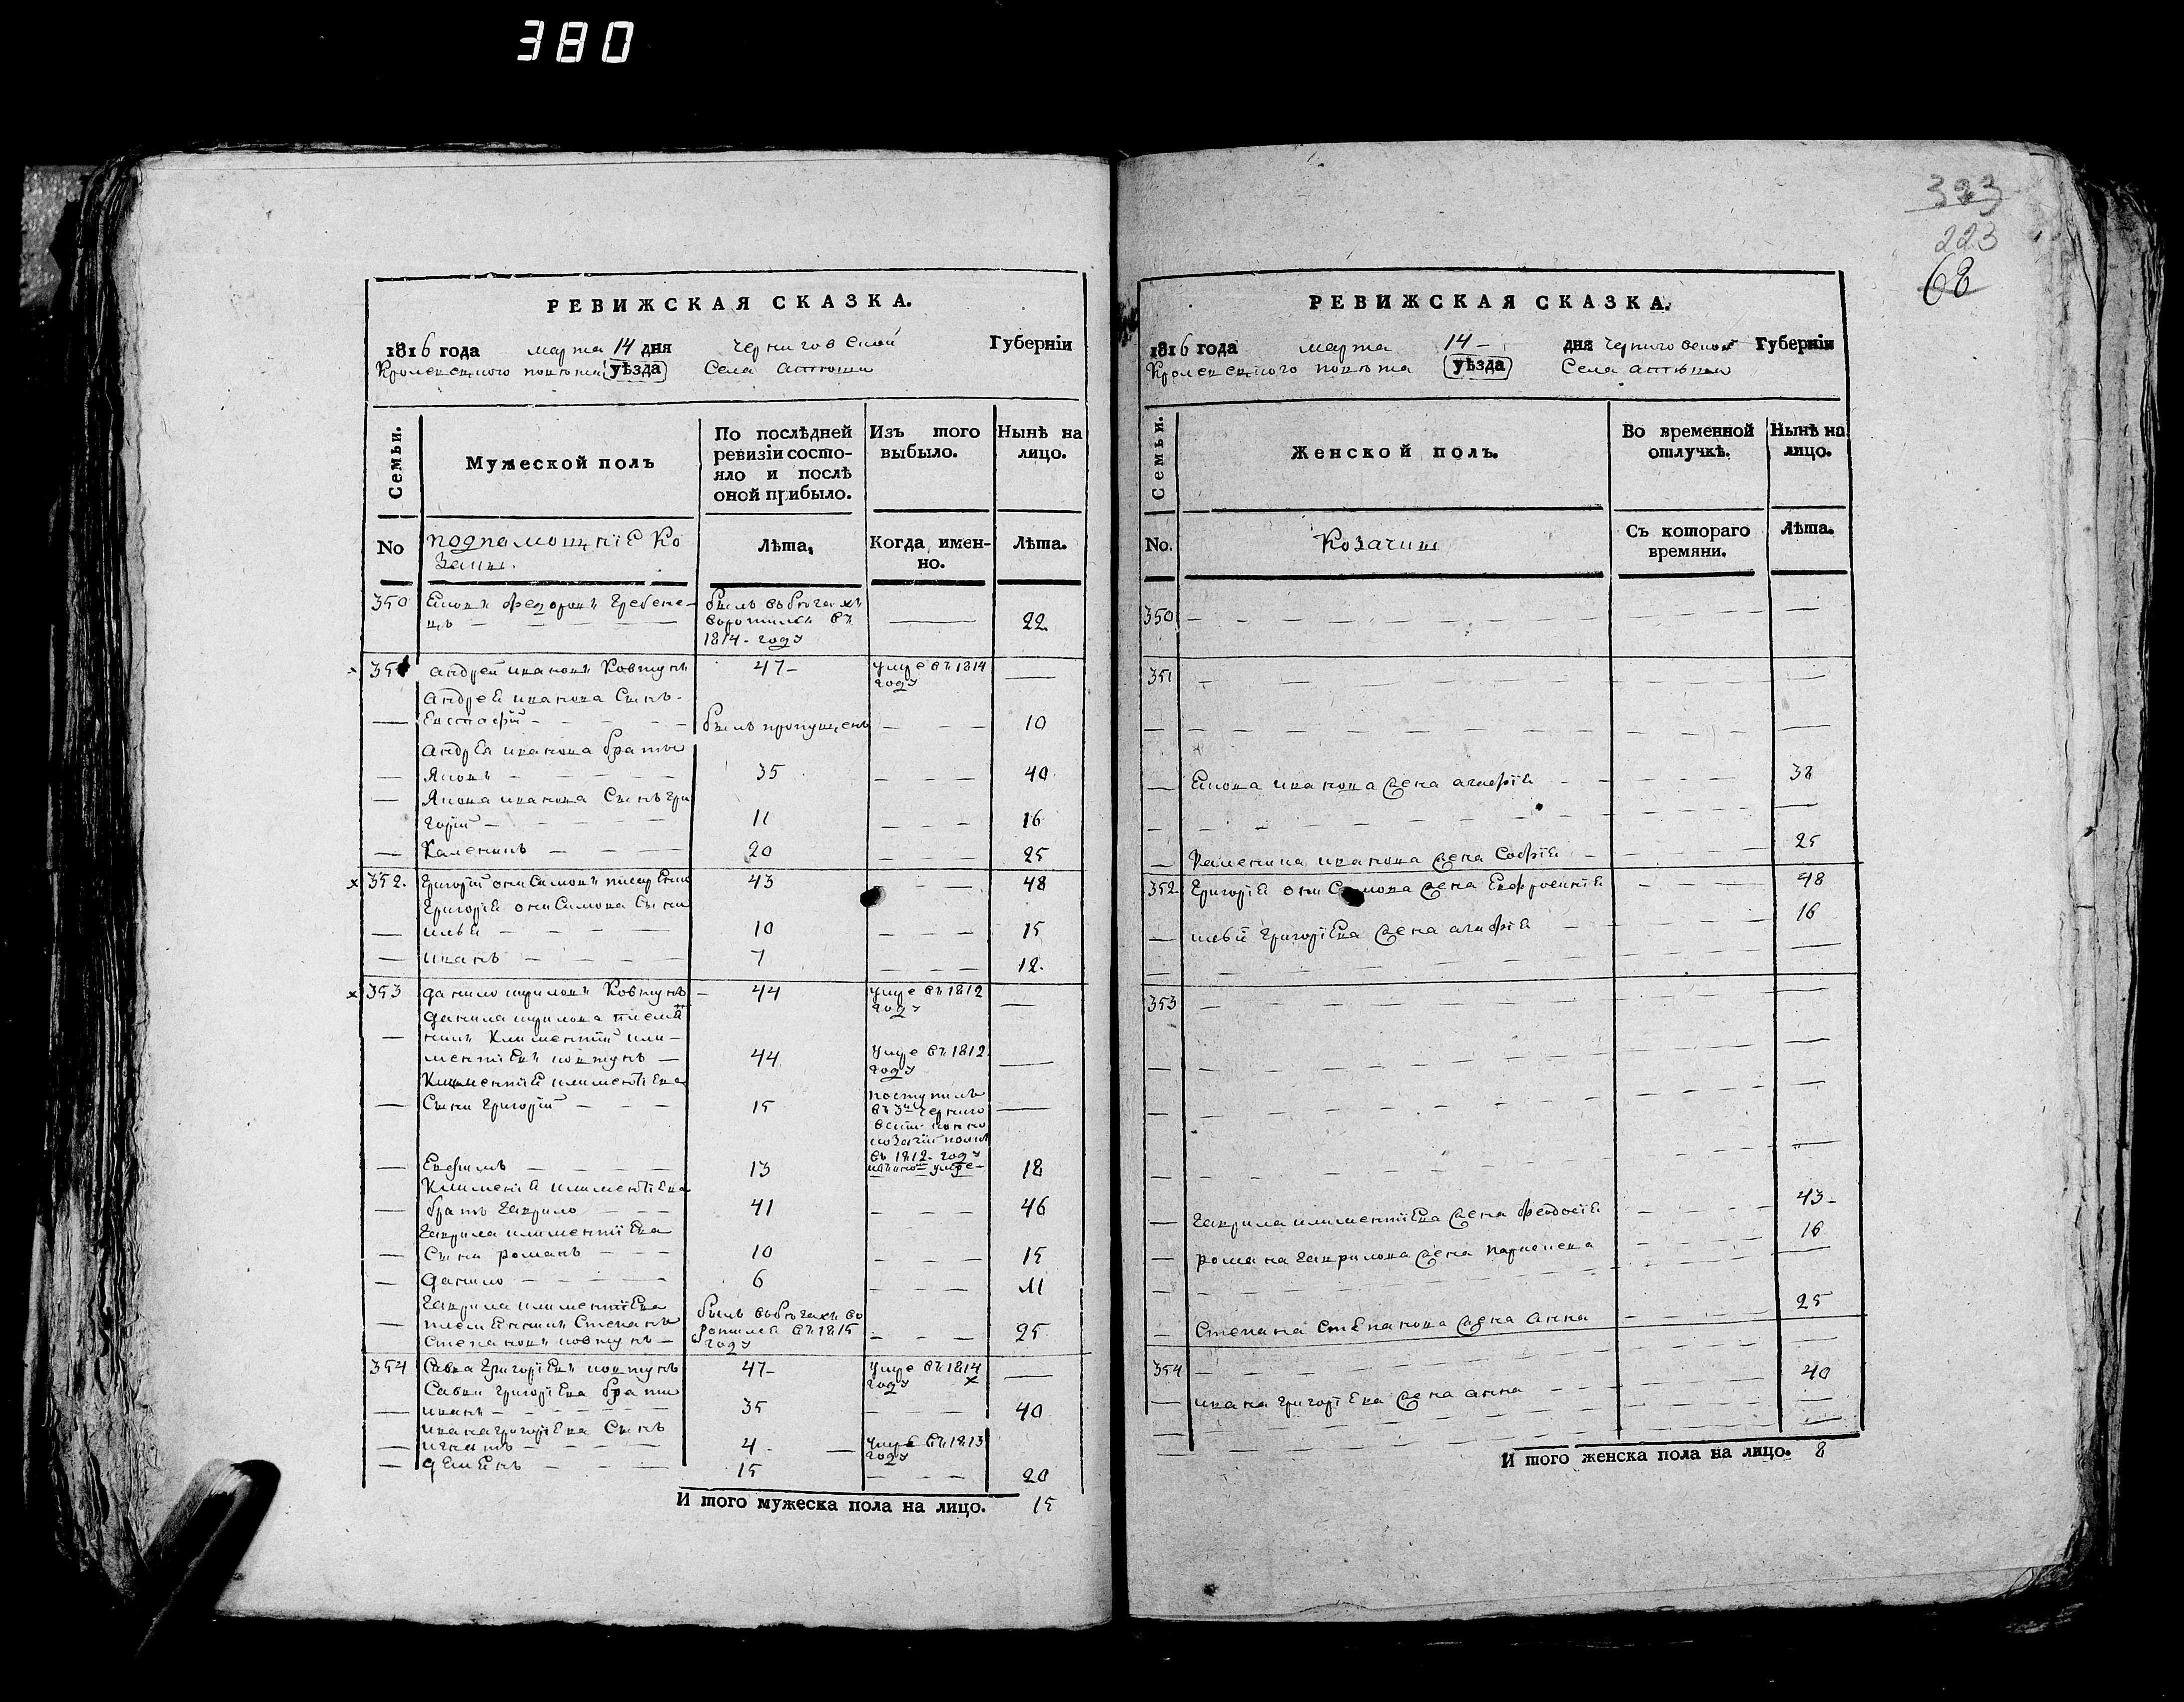 380
323
223
68
РЕВИЖСКАЯ СКАЗКА.
1816 года марта 14 дня Черниговской Губернiи
Кролевецкого повѣта уѣзда Села
Семьи.
Мужеской полъ
По послѣдней ревизiи состояло и послѣ оной прибыло.
Изъ того выбыло.
Нынѣ на лицо.
No
подпамощнiе Ко
заки.
Лѣта.
Когда имен-
но.
Лѣта.
350 Яковъ Федоровъ Гребене-
цъ — былъ въ бѣгахъ
воротился въ
1814 году — 22
351 Андрей ивановъ Ковтунъ 47 умре въ 1814
году —
Андрея иванова Сынъ
Евстафiй — былъ пропущенъ — 10
Андрея иванова братья
Яковъ — 35 — 40
Якова иванова Сынъ Гри
горiй — 11 — 16
Каленикъ — 20 — 25
352. Григорiй онисимовъ 43 — 48
Григорiя онисимова Сыни
илья — 10 — 15
иванъ — 7 — 12.
353 данило Ковтунъ 44 умре въ 1812
году —
данила племя
никъ Климентiй кли-
ментiевъ ковтунъ — 44 умре въ 1812
году —
Климентiя климентiева
Сыни Григорiй — 15 поступилъ
въ 3й Черниго
вскiй конно
козачiй полкъ
въ 1812 году
умре —
Ефимъ — 13 — 18
Климентiя климентiева
братъ Гаврило — 41 — 46
Гаврила климентiева
Сыни романъ — 10 — 15
данило — 6 — 11
Гаврила климентiева
племянникъ Степанъ
Степановъ ковтунъ — былъ въ бѣгахъ во
ротился въ 1815
году — 25
354 Савва Григорiевъ ковтунъ 47 умре въ 1814
году —
Саввы Григорiева братья
иванъ — 35 — 40
ивана Григорiева Сынъ
игнатъ — 4 — умре въ 1813
году
демянъ — 15 — 20
И того мужеска пола на лицо. 15
РЕВИЖСКАЯ СКАЗКА.
1816 года марта 14 дня Черниговской Губернiи
Кролевецкого повѣта уѣзда Села
Семьи.
Женской полъ.
Во временной отлучкѣ.
Нынѣ на лицо.
No.
Козачки
Съ котораго
времяни.
Лѣта.
350
351
Якова иванова жена агафiя — 38
Каленика иванова жена Софiя — 25
352 Григорiя онисимова жена Евфросинiя — 48
ильи Григорiева жена агафiя — 16
353
Гаврила климентiева жена феодосiя — 43
романа Гаврилова жена параскева — 16
Степана Степанова жена анна — 25
354
ивана Григорiева жена анна — 40
И того женска пола на лицо. 8